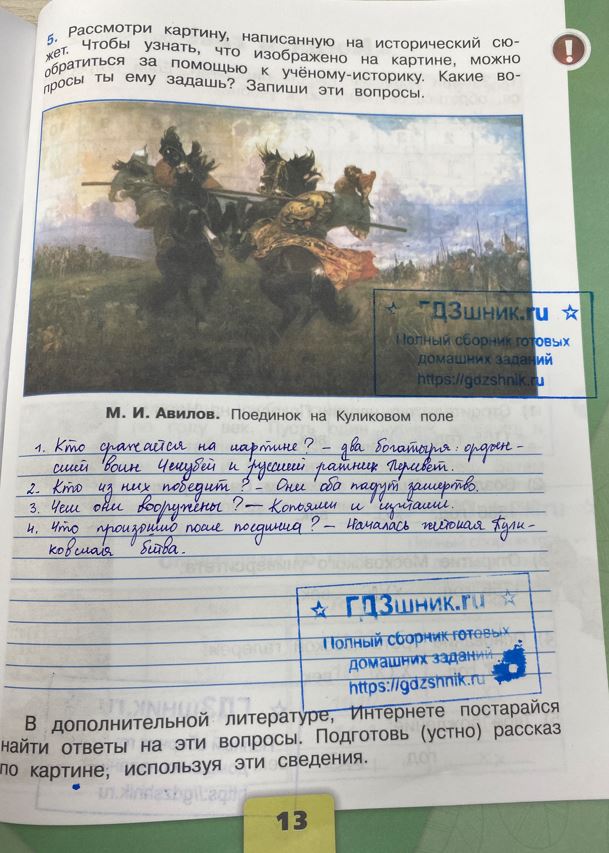 5. Рассмотри картину, написанную на исторический сю-
жет. Чтобы узнать, что изображено на картине, можно
обратиться за помощью к учёному-историку. Какие во-
просы ты ему задашь? Запиши эти вопросы.
!
ГДЗшник.ru
Полный сборник готовых
домашних заданий
https://gdzshnik.ru
М. И. Авилов. Поединок на Куликовом поле
1. Кто сражается на картине? – два богатыря: ордын-
ский воин Челубей и русский ратник Пересвет.
2. Кто из них победит? – Они оба падут замертво.
3. Чем они вооружены? – Копьями и щитами.
4. Что произошло после поединка? – Началась жестокая Кули-
ковская битва.
ГДЗшник.ru
Полный сборник готовых
домашних заданий
https://gdzshnik.ru
В дополнительной литературе, Интернете постарайся
найти ответы на эти вопросы. Подготовь (устно) рассказ
по картине, используя эти сведения.
13